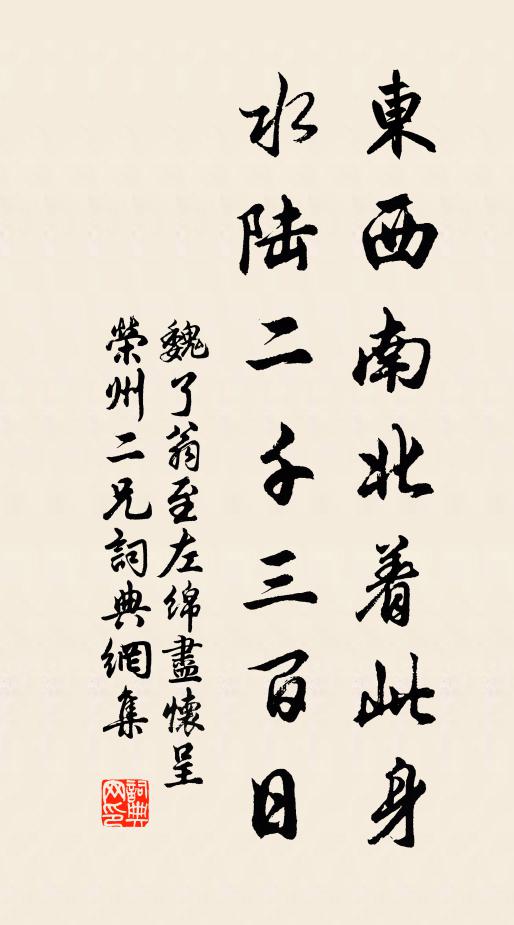 東西南北着此身
水陆二千三百日
魏了翁至左绵盡懷呈
榮州二兄詞典網集
詞典网印